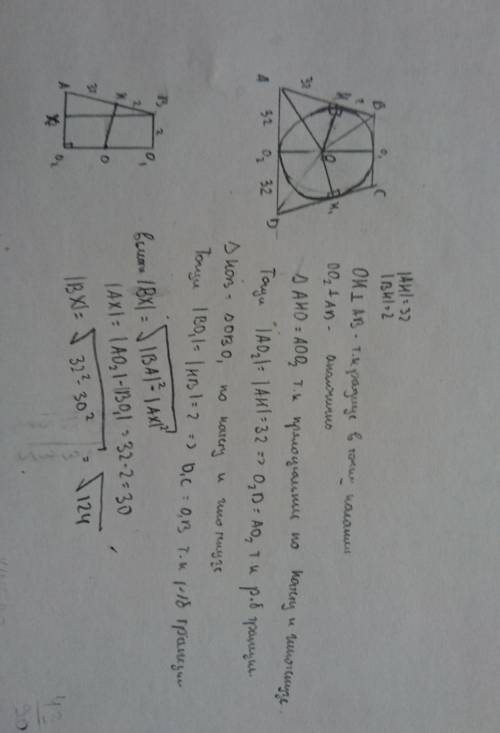 |AH|=32
|BH|=2
OH ⊥ AB - т.к радиус в точку касания
OO₂ ⊥ AD - аналогично
△ AHO = AOO₂ т.к прямоугольные по катету и гипотенузе.
Тогда |AO₂|=|AH|=32 => O₂D=AO₂ т.к р.б трапеция
△ HOB = △ OBO₁ по катету и гипотенузе
Тогда |BO₁|=|HB|=2 => O₁C=O₁B т.к р/б трапеции
высота |BX|=√|BA|²-|AX|²
|AX|=|AO₂|-|BO₁|=32-2=30
|BX|=√32²-30² = √124
B O₁ C
H 2
32
O H₁
A 32 O₂ 32 D
B 2 O₁
H 2
32
O
A X O₂